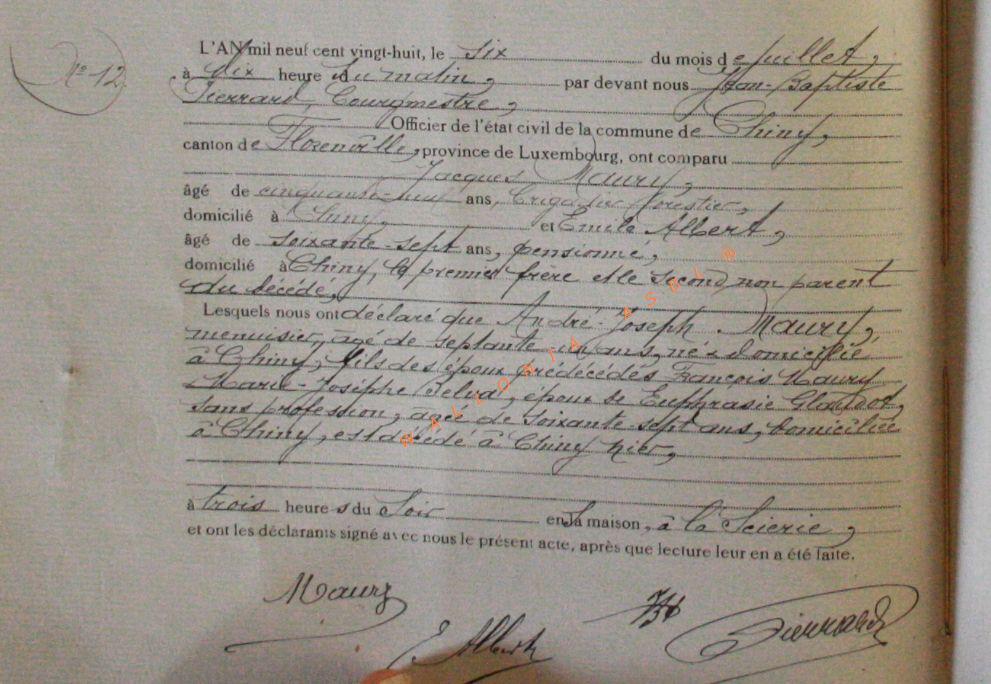 No 12.
L'AN mil neuf cent vingt-huit, le Six du mois de Juillet,
à dix heure du matin, par devant nous Jean-Baptiste
Pierrard, Bourgmestre,
Officier de l'état civil de la commune de Chiny,
canton de Florenville, province de Luxembourg, ont comparu
Jacques Maury,
âgé de cinquante-neuf ans, Brigadier forestier,
domicilié à Chiny, et Emile Albert,
âgé de soixante-sept ans, pensionné,
domicilié à Chiny, le premier frère et le second non parent
du décédé,
Lesquels nous ont déclaré que André-Joseph Maury,
menuisier, âgé de septante-un ans, né & domicilié
à Chiny, fils des époux prédécédés François Maury
Marie-Josèphe Belva, époux de Euphrasie Glaudot,
sans profession, agée de soixante-sept ans, domiciliée
à Chiny, est décédé à Chiny hier,
à trois heures du Soir en sa maison, à la Scierie,
et ont les déclarants signé avec nous le présent acte, après que lecture leur en a été faite.
Maury
E. Albert
Pierrard